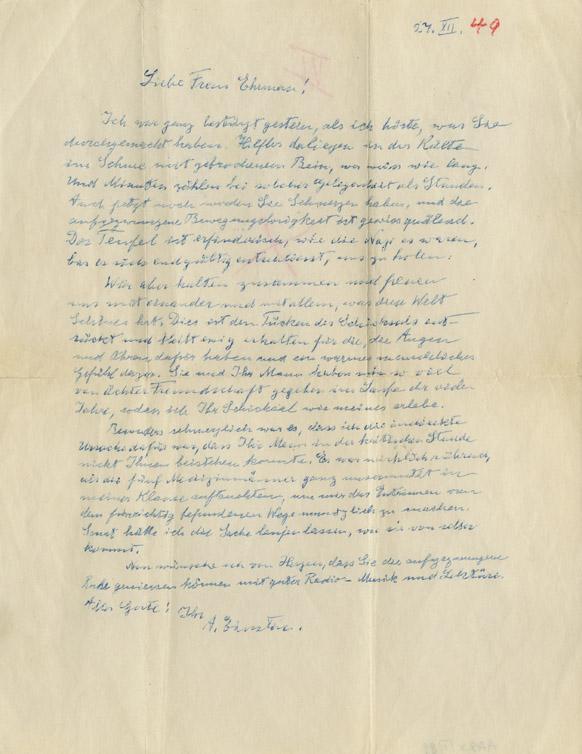 27. XII. 49
Liebe Frau Ehrmann!
Ich war ganz bestürzt gestern, als ich hörte, was Sie
durchgemacht haben. Hilflos daliegen in der Kälte
im Schnee mit gebrochenem Bein, wer weiss wie lang.
Und Minuten zählen bei solcher Gelegenheit als Stunden.
Auch jetzt noch werden Sie Schmerzen haben, und die
aufgezwungene Bewegungslosigkeit ist gewiss quälend.
Der Teufel ist erfinderisch, wie die Nazi es waren,
bis er sich endgültig entschliesst, uns zu holen.
Wir aber halten zusammen und freuen
uns miteinander und mit allem, was diese Welt
Schönes hat. Dies ist den Tücken des Schicksals ent-
rückt und bleibt ewig erhalten für die, die Augen
und Ohren dafür haben und ein warmes menschliches
Gefühl dazu. Sie und Ihr Mann haben mir so viel
von echter Freundschaft gegeben im Laufe der vielen
Jahre, sodass ich Ihr Schicksal wie meines erlebe.
Besonders schmerzlich war es, dass ich die indirekte
Ursache dafür war, dass Ihr Mann in der kritischen Stunde
nicht Ihnen beistehen konnte. Es war wirklich rührend,
als die fünf Medizinmänner ganz unvermutet in
meiner Klause auftauchten, um mir das
den Wege zu machen.
Sonst hätte ich die Sache laufen lassen, wie sie von selber
kommt.
Nun wünsche ich von Herzen, dass Sie die aufgezwungene
Ruhe geniessen können mit guter Radio-Musik und Lektüre.
Alles Gute! Ihr
A. Einstein.